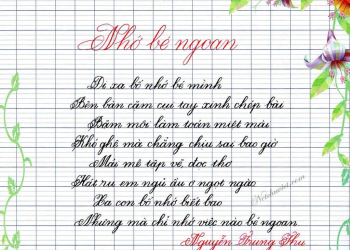 Nhớ bé ngoan
Đi xa bố nhớ bé mình
Bên bàn cặm cụi tay xinh chép bài
Bặm môi làm toán miệt mài
Khó ghê mà chẳng chịu sai bao giờ
Mải mê tập vẽ, đọc thơ
Hát ru em ngủ ầu ơ ngọt ngào
Xa con bố nhớ biết bao
Nhưng mà chỉ nhớ việc nào bé ngoan
Nguyễn Trung Thu